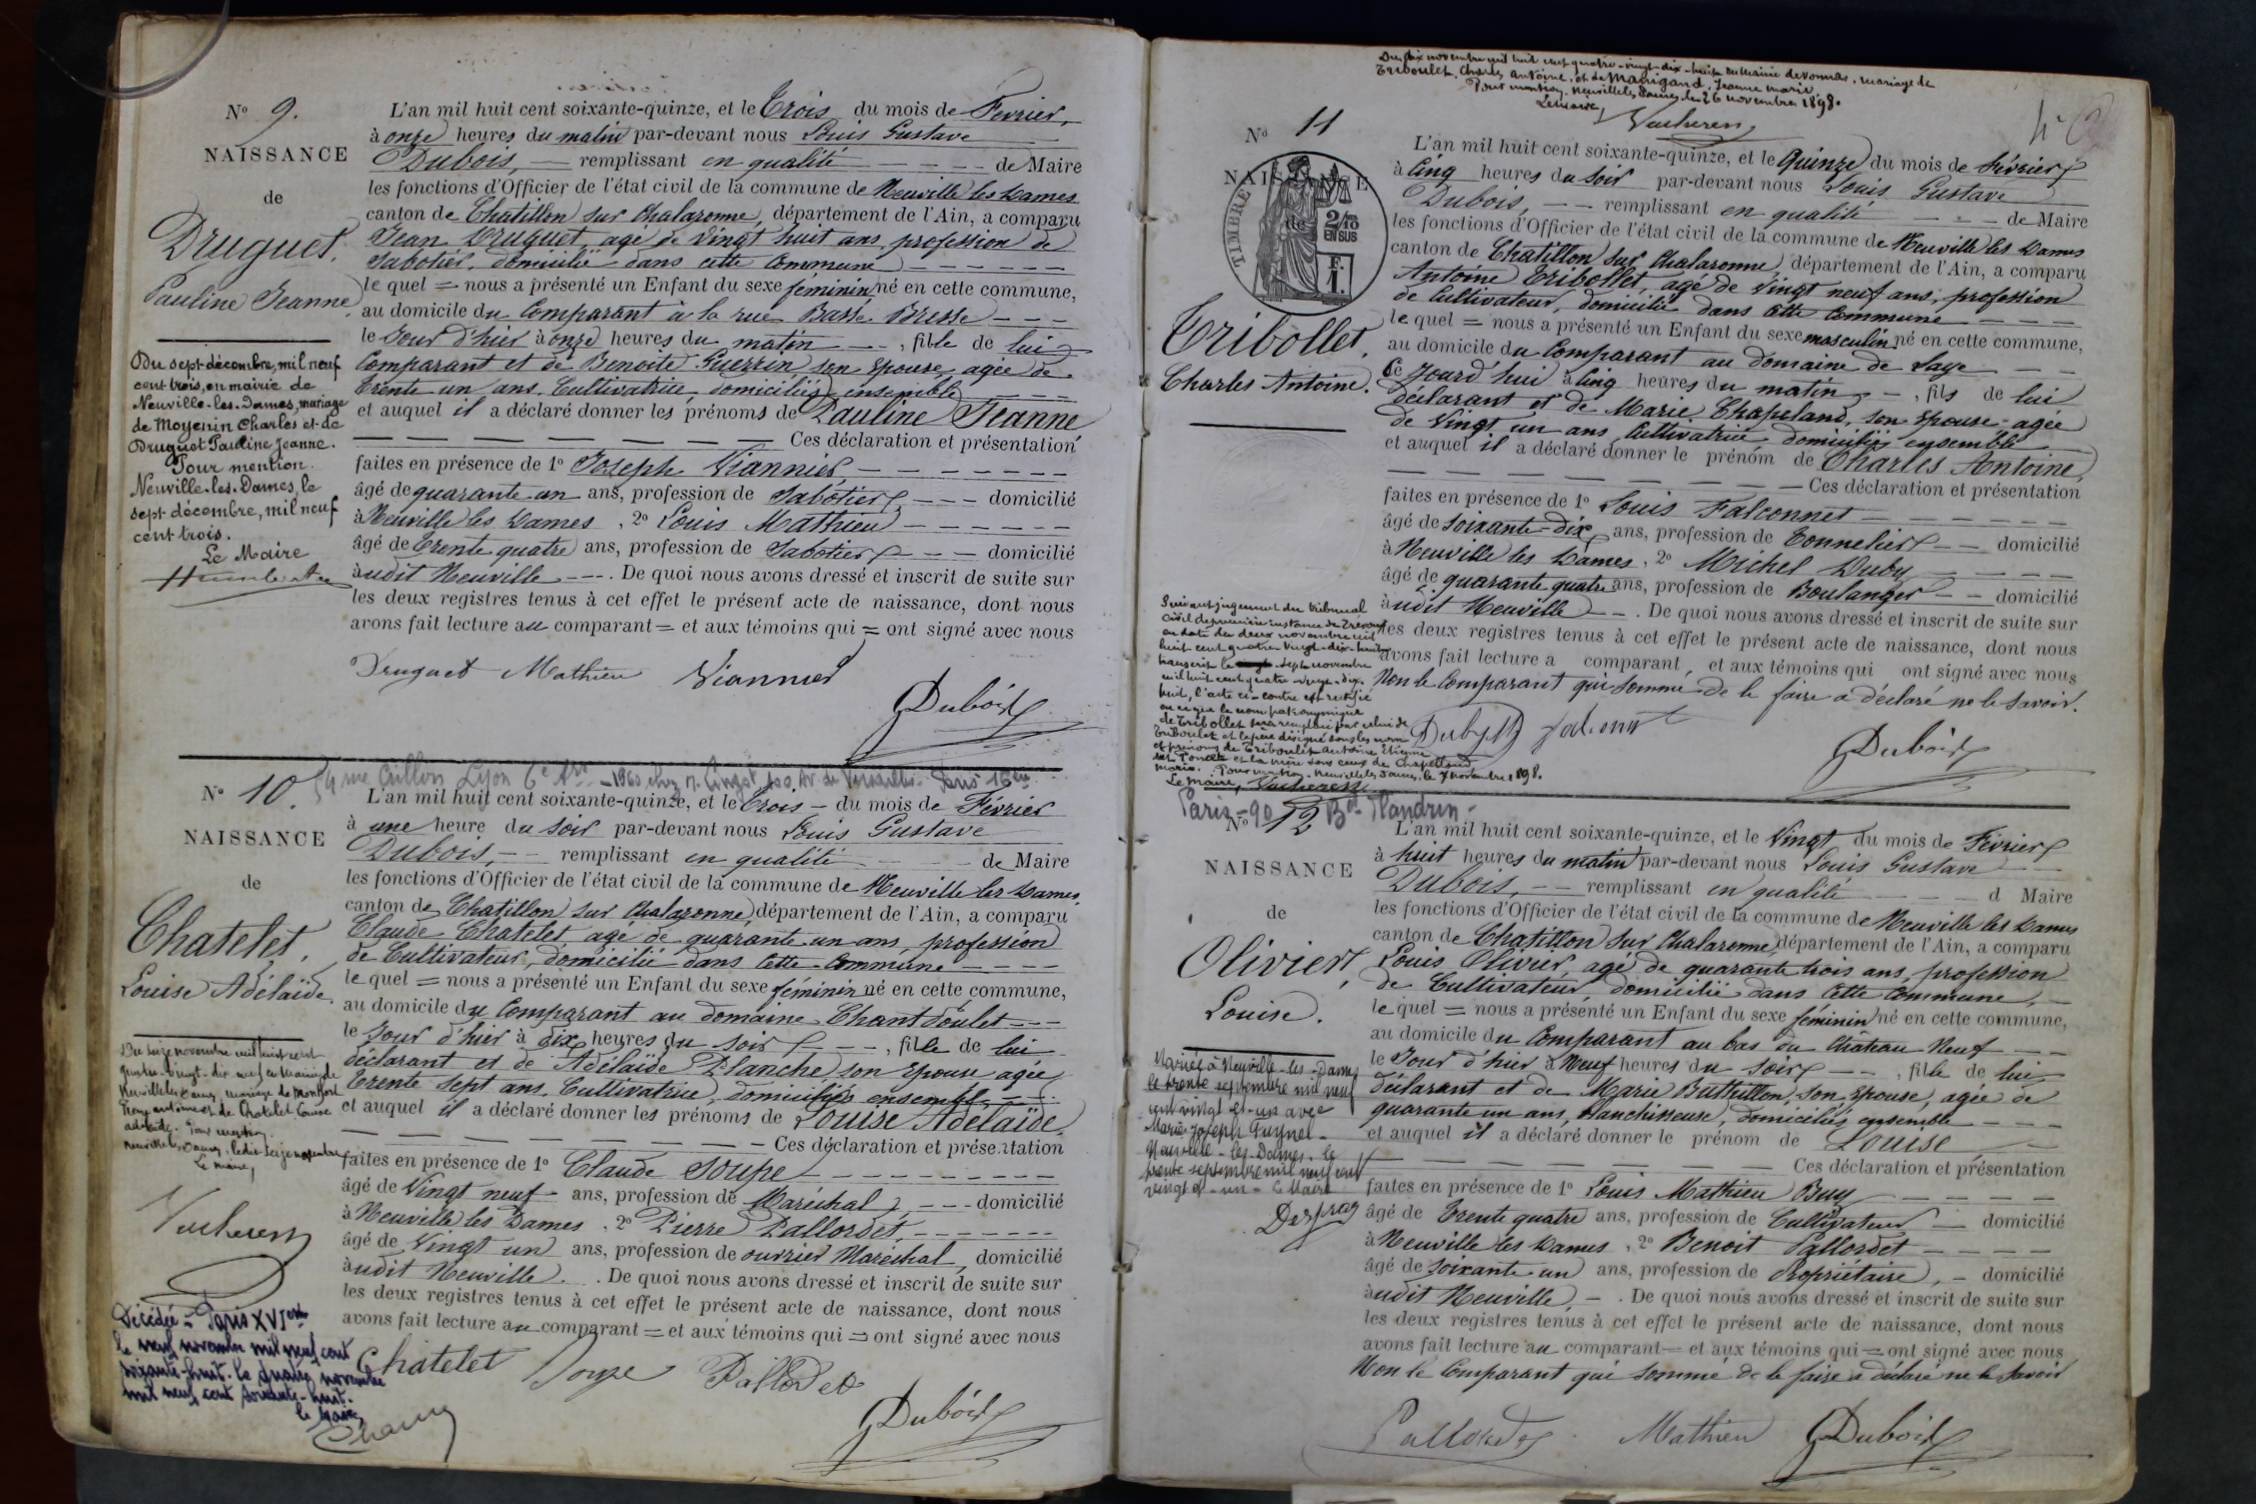 N° 9.
NAISSANCE
de
Druguet,
Pauline Jeanne,
Du sept décembre, mil neuf
cent trois, en mairie de
Neuville-les-Dames, mariage
de Moyenin Charles et de
Druguet Pauline Jeanne.
Pour mention.
Neuville-les-Dames, le
sept décembre, mil neuf
cent trois.
Le Maire
L'an mil huit cent soixante-quinze, et le Trois du mois de Fevrier,
à onze heures du matin par-devant nous Louis Gustave
Dubois, — remplissant en qualité — — — de Maire
les fonctions d'Officier de l'état civil de la commune de Neuville les Dames
canton de Chatillon sur Chalaronne, département de l'Ain, a comparu
Jean Druguet, agé de Vingt huit ans, profession de
Sabotier, domicilié dans cette Commune — — — — — —
le quel = nous a présenté un Enfant du sexe féminin né en cette commune,
au domicile du Comparant à la rue Basse Bresse — — —
le Jour d'hier à onze heures du matin — —, fille de lui
Comparant et de Benoite Guerrin son Epouse, agée de
Trente un ans, Cultivatrice, domiciliés ensemble — — —
et auquel il a déclaré donner les prénoms de Pauline Jeanne
— — — — — — — — Ces déclaration et présentation
faites en présence de 1° Joseph Viannier, — — — — — — —
âgé de quarante un ans, profession de Sabotier, — — — domicilié
à Neuville les Dames, 2° Louis Mathieu — — — — — — —
âgé de Trente quatre ans, profession de Sabotier — — — domicilié
àudit Neuville — — —. De quoi nous avons dressé et inscrit de suite sur
les deux registres tenus à cet effet le présent acte de naissance, dont nous
avons fait lecture au comparant = et aux témoins qui = ont signé avec nous
Druguet Mathieu Viannier
Dubois
54 rue Crillon Lyon 6e Art - 1960 chez M. 100 Av. de Versailles. Paris 16em
N° 10.
NAISSANCE
de
Chatelet,
Louise Adélaïde,
Du seize novembre mil huit cent
quatre-vingt-dix neuf en mairie de
Neuville les Dames, mariage de Montfort
et de Chatelet Louise
adélaïde. Pour mention.
Neuville les Dames, ledit seize novembre
Le maire,
Vucherens
Décédée à Paris XVIème
le neuf novembre mil neuf cent
soixante-huit. Le quatre novembre
mil neuf cent soixante-huit.
le Maire
L'an mil huit cent soixante-quinze, et le Trois — du mois de Février
à une heure du Soir par-devant nous Louis Gustave
Dubois, — — remplissant en qualité — — — de Maire
les fonctions d'Officier de l'état civil de la commune de Neuville les Dames,
canton de Chatillon sur Chalaronne, département de l'Ain, a comparu
Claude Chatelet agé de quarante un ans, profession
de Cultivateur, domicilié dans Cette Commune — — — —
le quel = nous a présenté un Enfant du sexe féminin né en cette commune,
au domicile du Comparant au domaine Chant Doulet — — —
le Jour d'hier à dix heures du soir — — —, fille de lui
déclarant et de Adélaïde Planche, son Epouse agée
Trente sept ans, Cultivatrice, domiciliés ensemble — —
et auquel il a déclaré donner les prénoms de Louise Adélaïde
— — — — — — — — Ces déclaration et présentation
faites en présence de 1° Claude Soupe — — — — — — — —
âgé de Vingt neuf — ans, profession de Maréchal, — — — domicilié
à Neuville les Dames, 2° Pierre Pallordet, — — — — — — —
âgé de Vingt un ans, profession de ouvrier Maréchal, domicilié
àudit Neuville. . De quoi nous avons dressé et inscrit de suite sur
les deux registres tenus à cet effet le présent acte de naissance, dont nous
avons fait lecture au comparant = et aux témoins qui = ont signé avec nous
Chatelet Soupe Pallordet
Dubois
Du dix novembre mil huit cent quatre-vingt-dix-huit en mairie de Vonnas, mariage de
Triboulet, Charles Antoine, et de Manigand, Jeanne Marie.
Pour mention. Neuville les Dames, le 26 novembre 1898.
Le maire,
Vucherens
N° 11
NAISSANCE
de
TIMBRE
2/10
EN SUS
F.
1.
Tribollet,
Charles Antoine.
Suivant jugement du tribunal
civil de première instance de Trévoux
en date du deux novembre mil
huit cent quatre-vingt-dix-huit
transcrit le sept novembre
mil huit cent quatre-vingt-dix-
huit, l'acte ci-contre est rectifié
en ce que le nom patronymique
de Tribollet sera remplacé par celui de
Triboulet et le père désigné sous les nom
et prénoms de Triboulet Antoine Etienne
et la mère sous ceux de Chapelland
Marie. Pour mention. Neuville les Dames, le 7 novembre 1898.
Le maire, Vucherens
L'an mil huit cent soixante-quinze, et le Quinze du mois de Février
à Cinq heures du Soir par-devant nous Louis Gustave
Dubois, — — remplissant en qualité — — — de Maire
les fonctions d'Officier de l'état civil de la commune de Neuville les Dames
canton de Chatillon sur Chalaronne, département de l'Ain, a comparu
Antoine Tribollet, agé de Vingt neuf ans, profession
de Cultivateur, domicilié dans Cette Commune — — — —
le quel = nous a présenté un Enfant du sexe masculin né en cette commune,
au domicile du Comparant au domaine de Saye — — —
Ce Jourd'hui à Cinq heures du matin — —, fils de lui
déclarant et de Marie Chapeland, son Epouse agée
de Vingt un ans, Cultivatrice, domiciliés ensemble —
et auquel il a déclaré donner le prénom de Charles Antoine,
— — — — — — — — Ces déclaration et présentation
faites en présence de 1° Louis Falconnet — — — — — —
âgé de soixante-dix ans, profession de Tonnelier — — domicilié
à Neuville les Dames, 2° Michel Duby — — — — — —
âgé de quarante quatre ans, profession de Boulanger — — domicilié
àudit Neuville — —. De quoi nous avons dressé et inscrit de suite sur
les deux registres tenus à cet effet le présent acte de naissance, dont nous
avons fait lecture a comparant, et aux témoins qui ont signé avec nous
Non le Comparant qui sommé de le faire a déclaré ne le savoir.
Duby M
Dubois
Paris - 90 Bd Flandrin -
N° 12
NAISSANCE
de
Olivier,
Louise.
Mariée à Neuville-les-Dames
le trente septembre mil neuf
cent vingt-et-un avec
Marie Joseph Puynel -
Neuville-les-Dames, le
trente septembre mil neuf cent
vingt-et-un - Le Maire
L'an mil huit cent soixante-quinze, et le Vingt du mois de Février
à huit heures du matin par-devant nous Louis Gustave
Dubois, — — remplissant en qualité — — — d Maire
les fonctions d'Officier de l'état civil de la commune de Neuville les Dames
canton de Chatillon sur Chalaronne, département de l'Ain, a comparu
Louis Olivier, agé de quarante trois ans, profession
de Cultivateur domicilié dans Cette Commune, —
le quel = nous a présenté un Enfant du sexe féminin né en cette commune,
au domicile du Comparant au bas du Château Neuf — —
le Jour d'hier à Neuf heures du soir — —, fille de lui
déclarant et de Marie Buthillon, son Epouse, agée de
quarante un ans, Blanchisseuse, domiciliés ensemble — — —
et auquel il a déclaré donner le prénom de Louise —
— — — — — — — — Ces déclaration et présentation
faites en présence de 1° Louis Mathieu Buy — — — — —
âgé de Trente quatre ans, profession de Cultivateur — domicilié
à Neuville les Dames, 2° Benoit Pallordet — — — — —
âgé de soixante un ans, profession de Propriétaire, — domicilié
àudit Neuville, — . De quoi nous avons dressé et inscrit de suite sur
les deux registres tenus à cet effet le présent acte de naissance, dont nous
avons fait lecture au comparant = et aux témoins qui = ont signé avec nous
Non le Comparant qui sommé de le faire a déclaré ne le savoir
Pallordet Mathieu Dubois